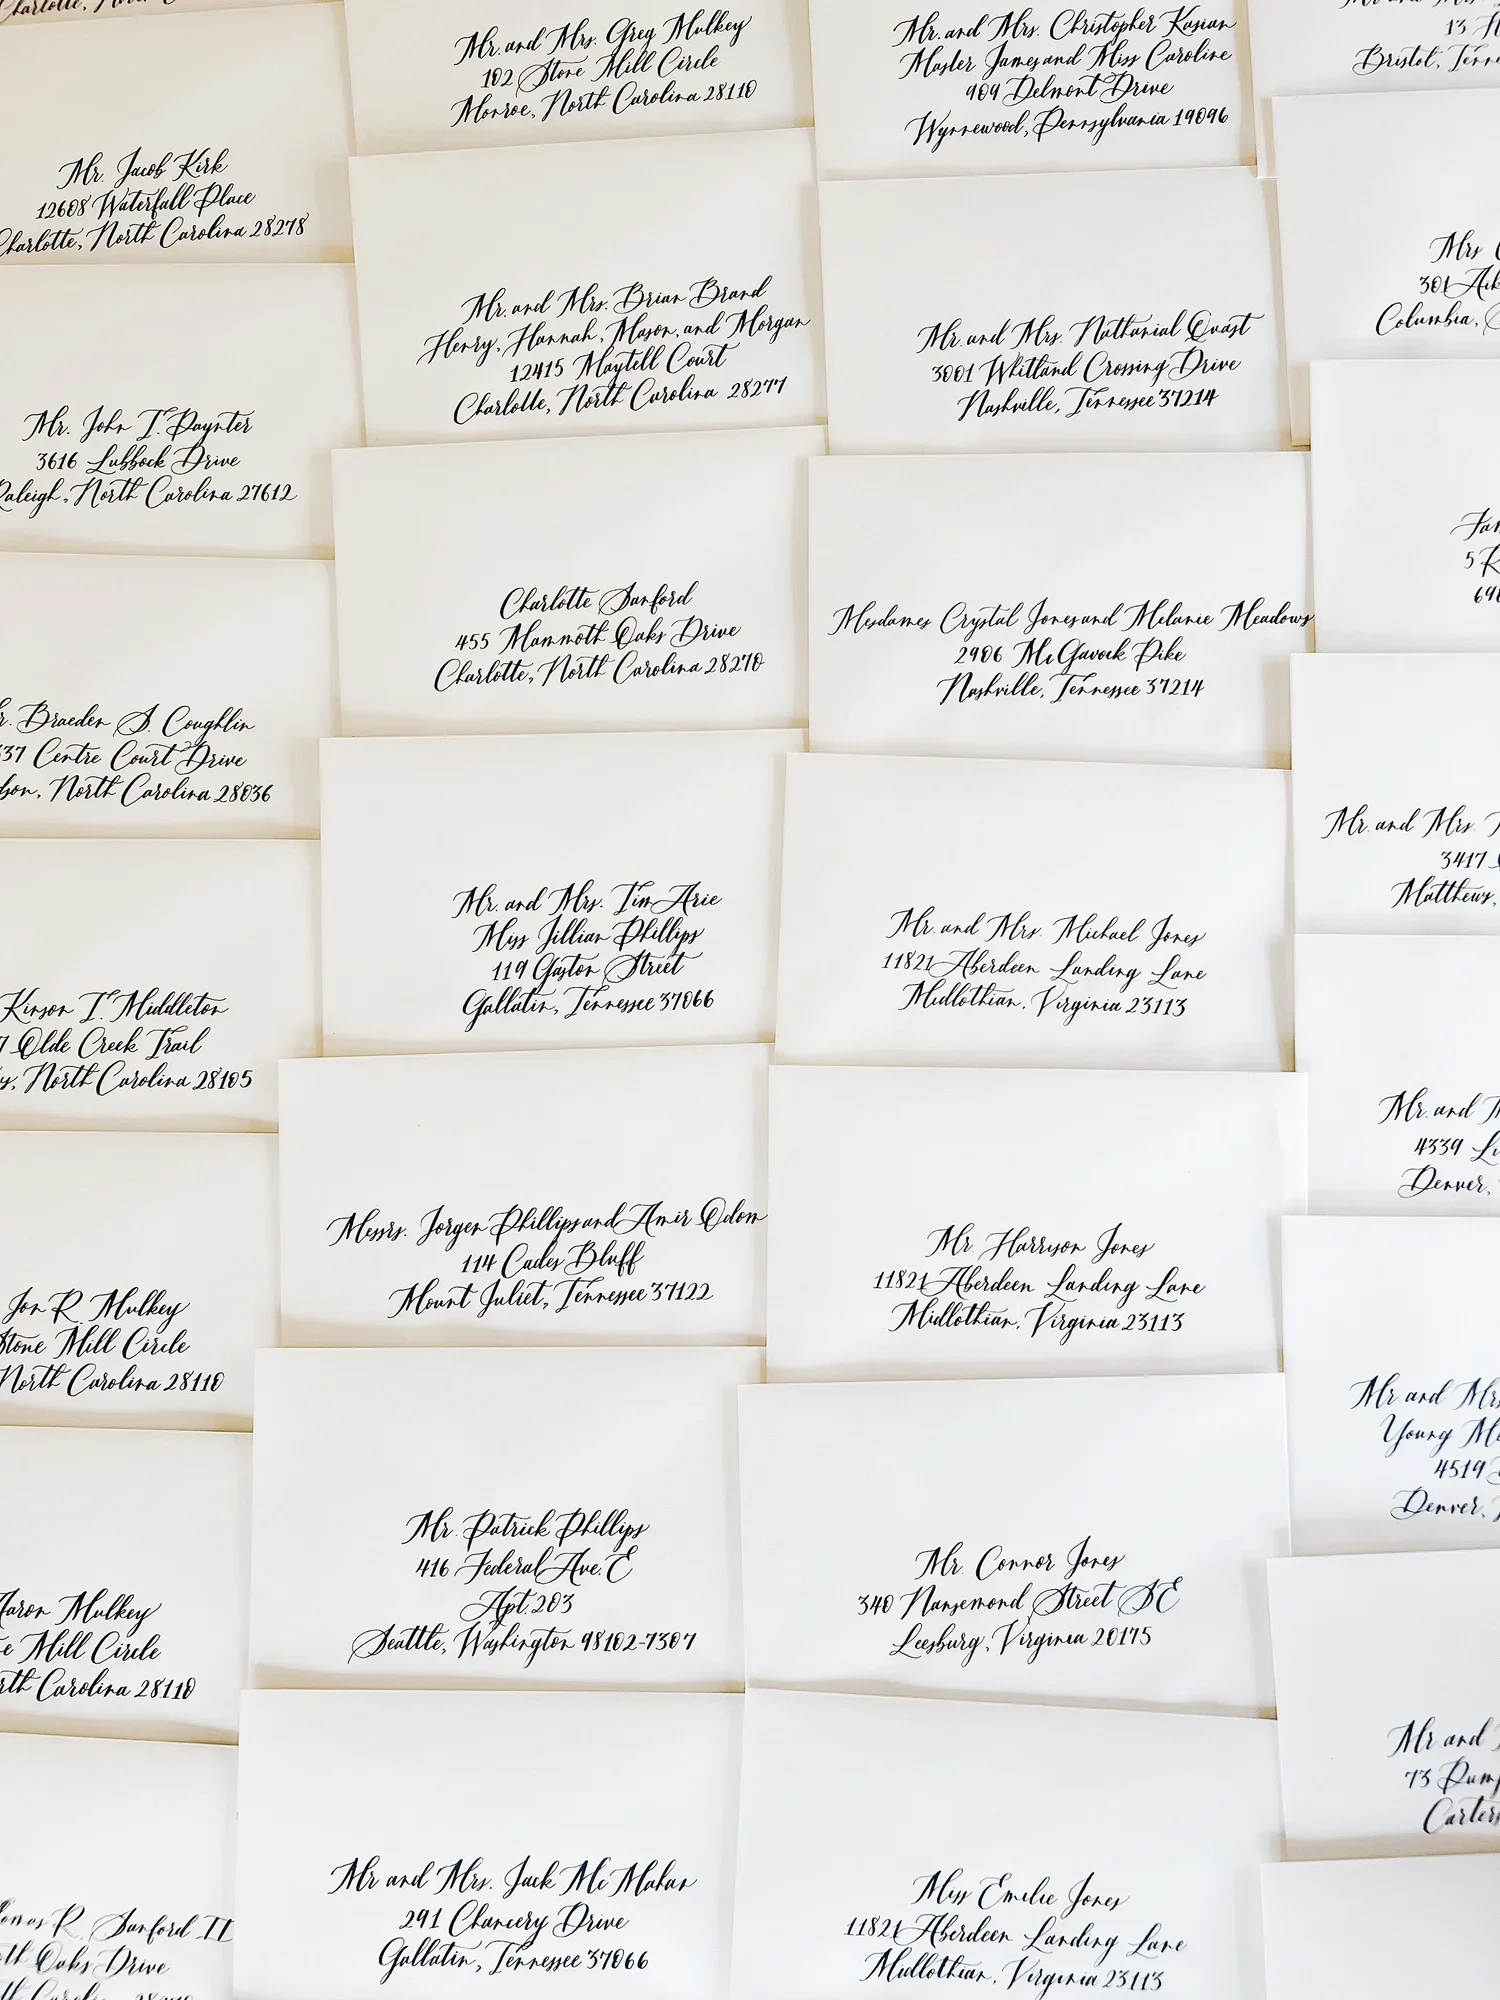 Charlotte, North
Mr. Jacob Kirk
12608 Waterfall Place
Charlotte, North Carolina 28278
Mr. John T. Paynter
3616 Lubbock Drive
Raleigh, North Carolina 27612
Braeden S. Coughlin
337 Centre Court Drive
North Carolina 28036
Kinson T. Middleton
7 Olde Creek Trail
North Carolina 28105
Jon R. Mulkey
Stone Mill Circle
North Carolina 28110
Aaron Mulkey
Mill Circle
Carolina 28110
R. Sanford II
Oaks Drive
Mr. and Mrs. Greg Mulkey
102 Stone Mill Circle
Monroe, North Carolina 28110
Mr. and Mrs. Brian Brand
Henry, Hannah, Mason, and Morgan
12415 Maytell Court
Charlotte, North Carolina 28277
Charlotte Sanford
455 Mammoth Oaks Drive
Charlotte, North Carolina 28270
Mr. and Mrs. Tim Arie
Miss Jillian Phillips
119 Gaston Street
Gallatin, Tennessee 37066
Messrs. Jorgen Phillips and Amir Odom
114 Cades Bluff
Mount Juliet, Tennessee 37122
Mr. Patrick Phillips
416 Federal Ave. E
Apt. 203
Seattle, Washington 98102-7307
Mr and Mrs. Jack McMahan
291 Chancery Drive
Gallatin, Tennessee 37066
Mr. and Mrs. Christopher Kasian
Master James and Miss Caroline
909 Delmont Drive
Wynnewood, Pennsylvania 19096
Mr. and Mrs. Nathanial Quast
3001 Whitland Crossing Drive
Nashville, Tennessee 37214
Mesdames Crystal Jones and Melanie Meadows
2906 McGavock Pike
Nashville, Tennessee 37214
Mr. and Mrs. Michael Jones
11821 Aberdeen Landing Lane
Midlothian, Virginia 23113
Mr. Harrison Jones
11821 Aberdeen Landing Lane
Midlothian, Virginia 23113
Mr. Connor Jones
340 Nansemond Street SE
Leesburg, Virginia 20175
Miss Emilie Jones
11821 Aberdeen Landing Lane
Midlothian, Virginia 23113
13
Bristol,
Mrs
301
Columbia,
5
Mr. and Mrs.
3417
Matthews,
Mr. and
4339
Denver,
Mr and Mrs
Young
4519
Denver,
Mr and
73